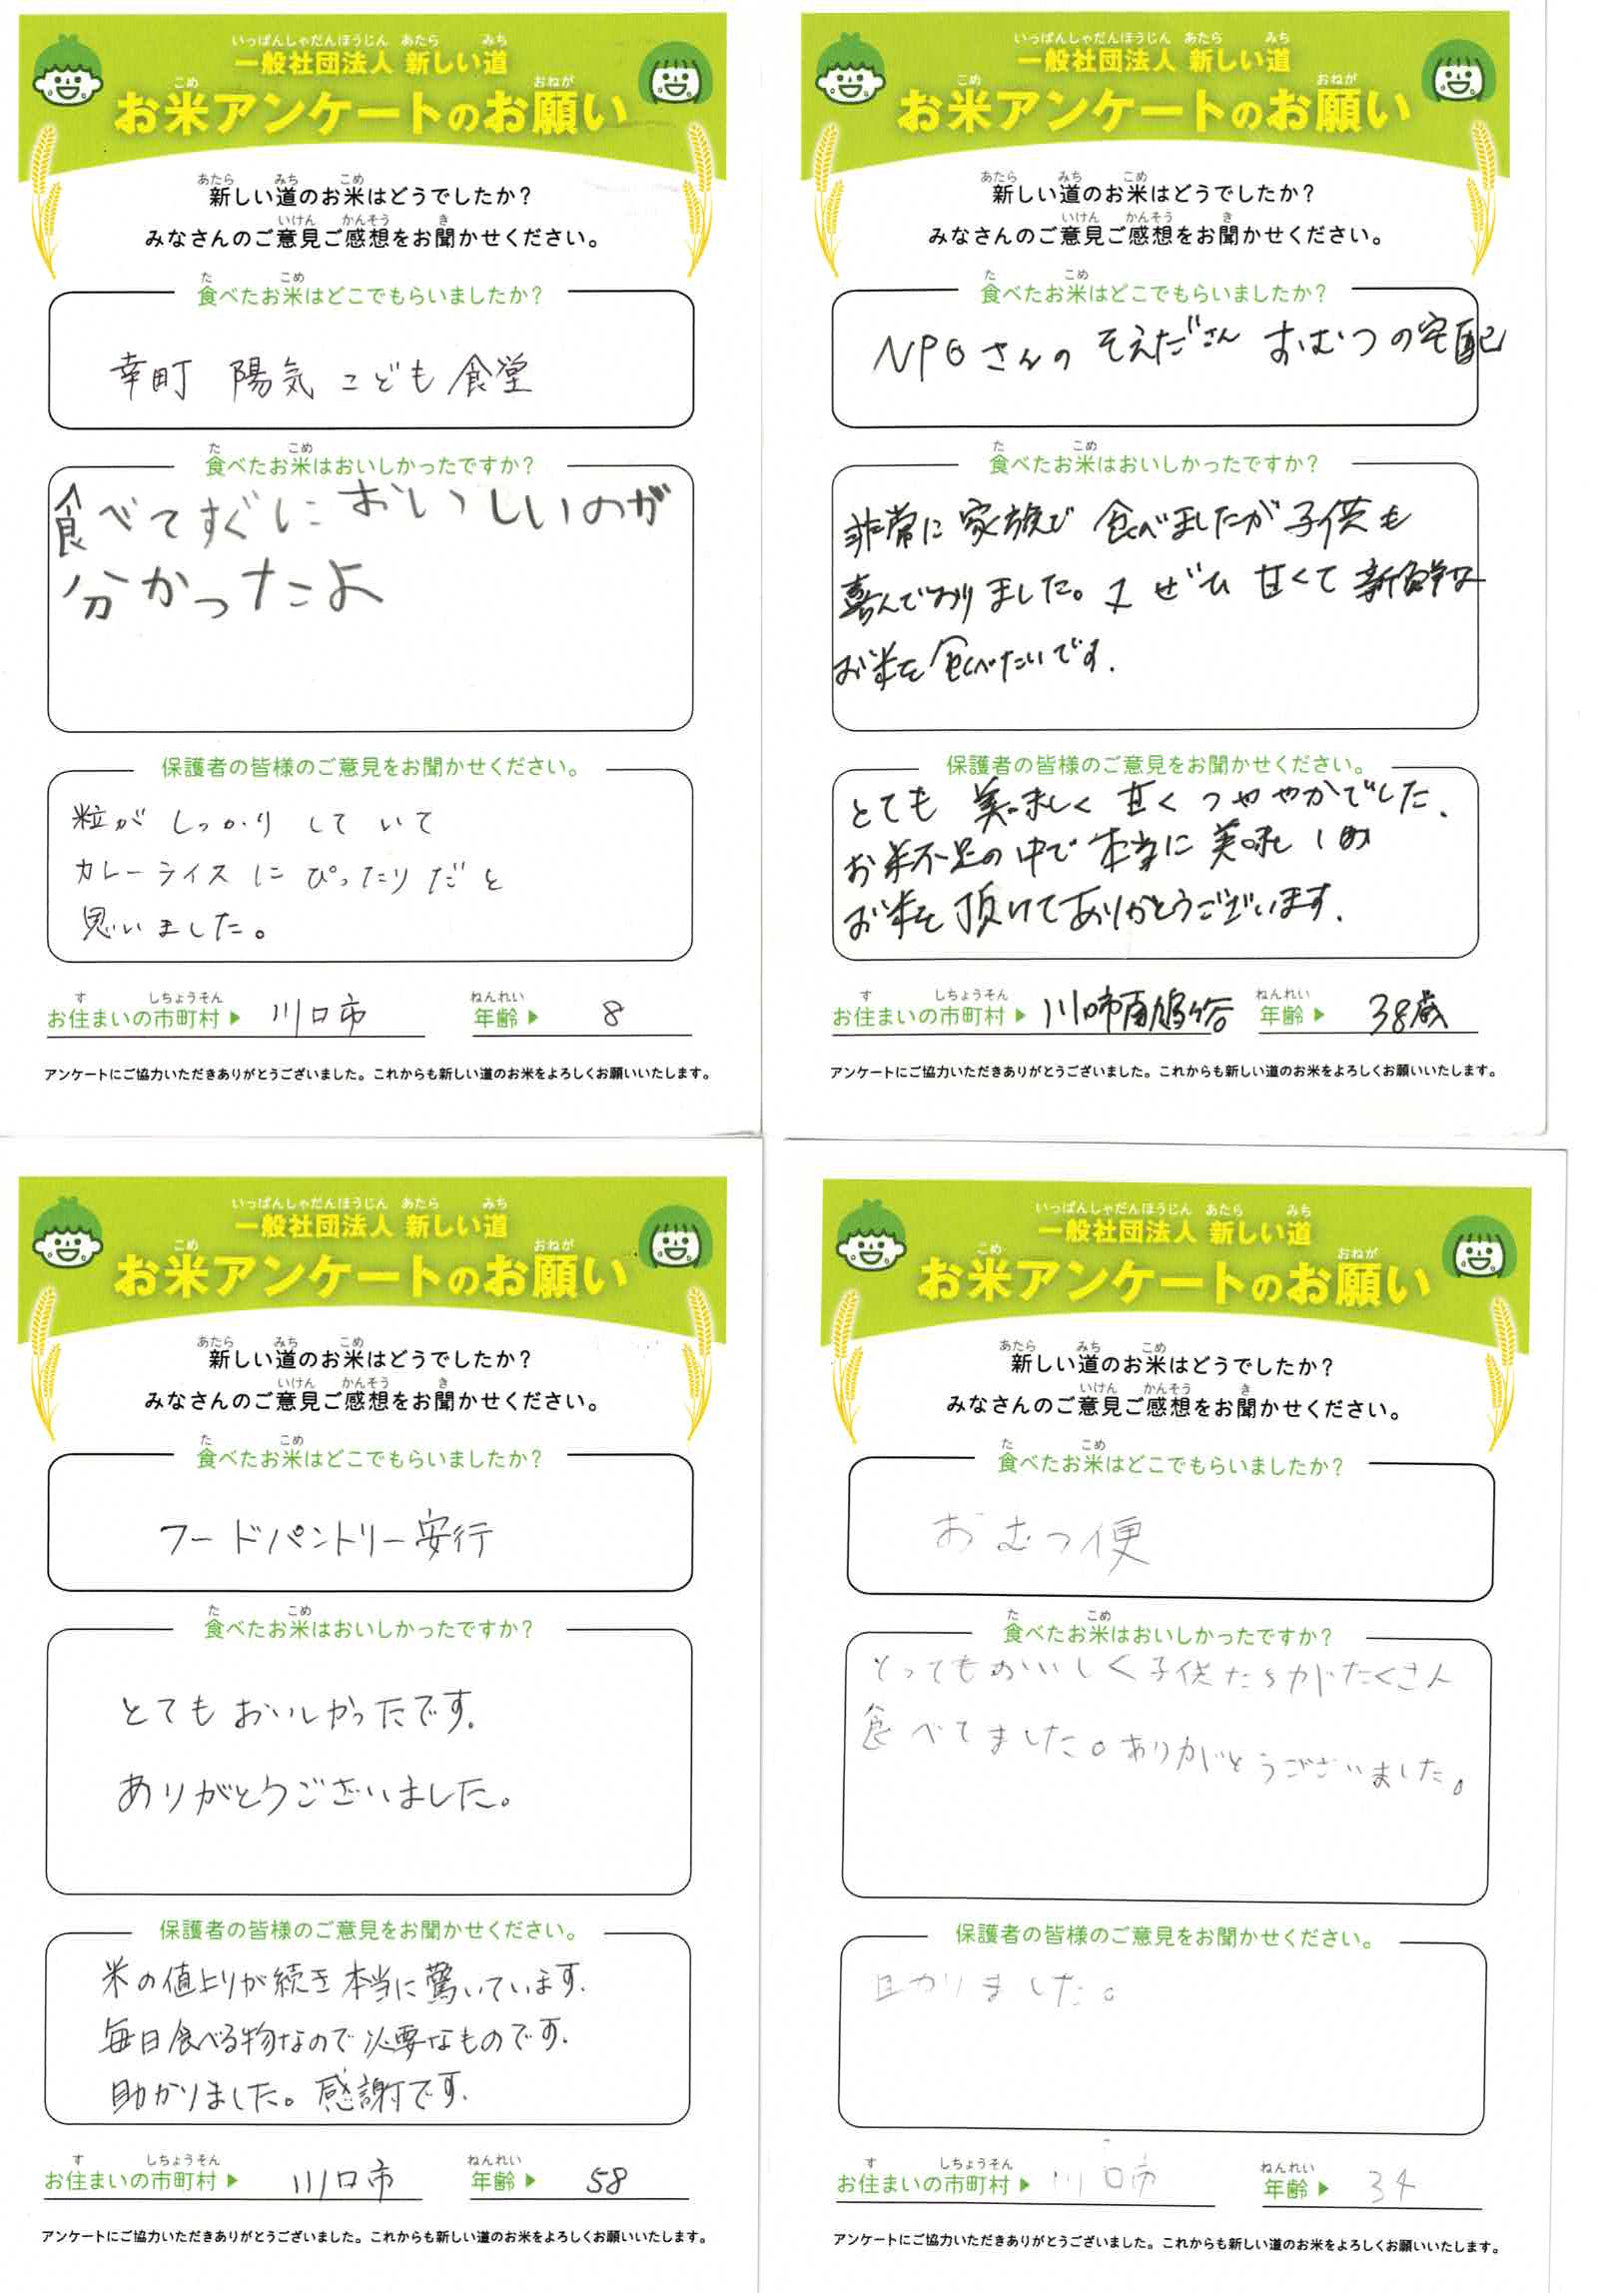 いっぱんしゃだんほうじん あたら みち
一般社団法人 新しい道
こめ おねが
お米アンケートのお願い
あたら みち こめ
新しい道のお米はどうでしたか？
いけん かんそう き
みなさんのご意見ご感想をお聞かせください。
た こめ
食べたお米はどこでもらいましたか？
幸町 陽気 こども食堂
た こめ
食べたお米はおいしかったですか？
食べてすぐに おいしいのが
分かったよ
保護者の皆様のご意見をお聞かせください。
粒が しっかり して いて
カレーライス に ぴったり だと
思いました。
す しちょうそん ねんれい
お住まいの市町村▶ 川口市 年齢▶ 8
アンケートにご協力いただきありがとうございました。これからも新しい道のお米をよろしくお願いいたします。
いっぱんしゃだんほうじん あたら みち
一般社団法人 新しい道
こめ おねが
お米アンケートのお願い
あたら みち こめ
新しい道のお米はどうでしたか？
いけん かんそう き
みなさんのご意見ご感想をお聞かせください。
た こめ
食べたお米はどこでもらいましたか？
NPOさんの そえださん おむつの宅配
た こめ
食べたお米はおいしかったですか？
非常に 家族で 食べましたが 子供も
喜んでおりました。又 ぜひ 甘くて 新鮮な
お米を食べたいです.
保護者の皆様のご意見をお聞かせください。
とても 美味しく 甘く つややかでした.
お米不足の中で 本当に 美味しい
お米を 頂けてありがとうございます.
す しちょうそん ねんれい
お住まいの市町村▶ 川口市南鳩ヶ谷 年齢▶ 38歳
アンケートにご協力いただきありがとうございました。これからも新しい道のお米をよろしくお願いいたします。
いっぱんしゃだんほうじん あたら みち
一般社団法人 新しい道
こめ おねが
お米アンケートのお願い
あたら みち こめ
新しい道のお米はどうでしたか？
いけん かんそう き
みなさんのご意見ご感想をお聞かせください。
た こめ
食べたお米はどこでもらいましたか？
フードパントリー安行
た こめ
食べたお米はおいしかったですか？
とても おいしかったです.
ありがとうございました。
保護者の皆様のご意見をお聞かせください。
米の値上りが続き 本当に驚いています.
毎日食べる物なので必要なものです.
助かりました。感謝です.
す しちょうそん ねんれい
お住まいの市町村▶ 川口市 年齢▶ 58
アンケートにご協力いただきありがとうございました。これからも新しい道のお米をよろしくお願いいたします。
いっぱんしゃだんほうじん あたら みち
一般社団法人 新しい道
こめ おねが
お米アンケートのお願い
あたら みち こめ
新しい道のお米はどうでしたか？
いけん かんそう き
みなさんのご意見ご感想をお聞かせください。
た こめ
食べたお米はどこでもらいましたか？
おむつ便
た こめ
食べたお米はおいしかったですか？
とってもおいしく子供たちがたくさん
食べてました。ありがとうございました。
保護者の皆様のご意見をお聞かせください。
助かりました。
す しちょうそん ねんれい
お住まいの市町村▶ 川口市 年齢▶ 34
アンケートにご協力いただきありがとうございました。これからも新しい道のお米をよろしくお願いいたします。